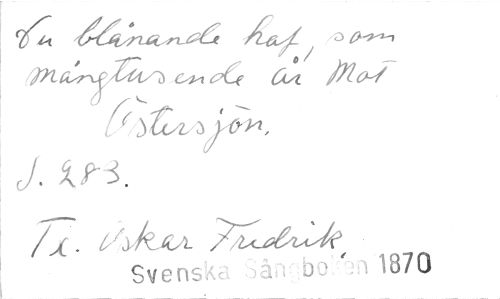 Du blånande haf, som
mångtusende år Mot
Östersjön.
S. 283.
Tx. Oskar Fredrik
Svenska Sångboken 1870